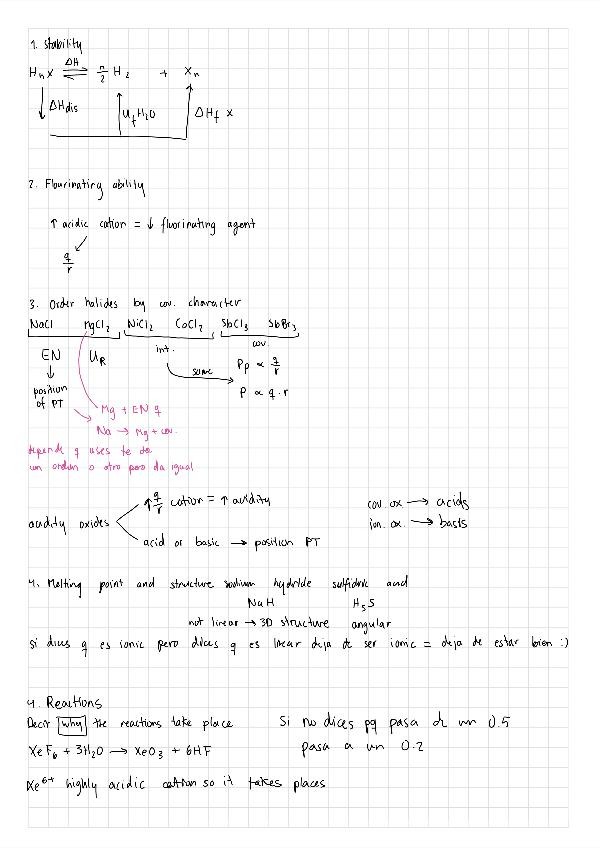 1. Stability
HnX ⇌ ΔH n/2 H2 + Xn
ΔHdis UfH2O ΔHf x
2. Flourinating ability
↑ acidic cation = ↓ fluorinating agent
q/r
3. Order halides by cov. character
NaCl MgCl2 NiCl2 CoCl2 SbCl3 SbBr3
EN UR int. cov.
↓ same Pp ∝ q/r
position of PT P ∝ q·r
Mg + EN q
Na → Mg + cov.
depende q uses te da
un orden o otro pero da igual
acidity oxides ↑ q/r cation = ↑ acidity cov. ox → acids
acid or basic → position PT ion. ox. → basis
4. Melting point and structure sodium hydride sulfidric acid
NaH H2S
not linear → 3D structure angular
si dices q es ionic pero dices q es linear deja de ser ionic = deja de estar bien :)
4. Reactions
Decir why the reactions take place Si no dices pq pasa de un 0.5
XeF6 + 3H2O → XeO3 + 6HF pasa a un 0.2
Xe6+ highly acidic cation so it takes places